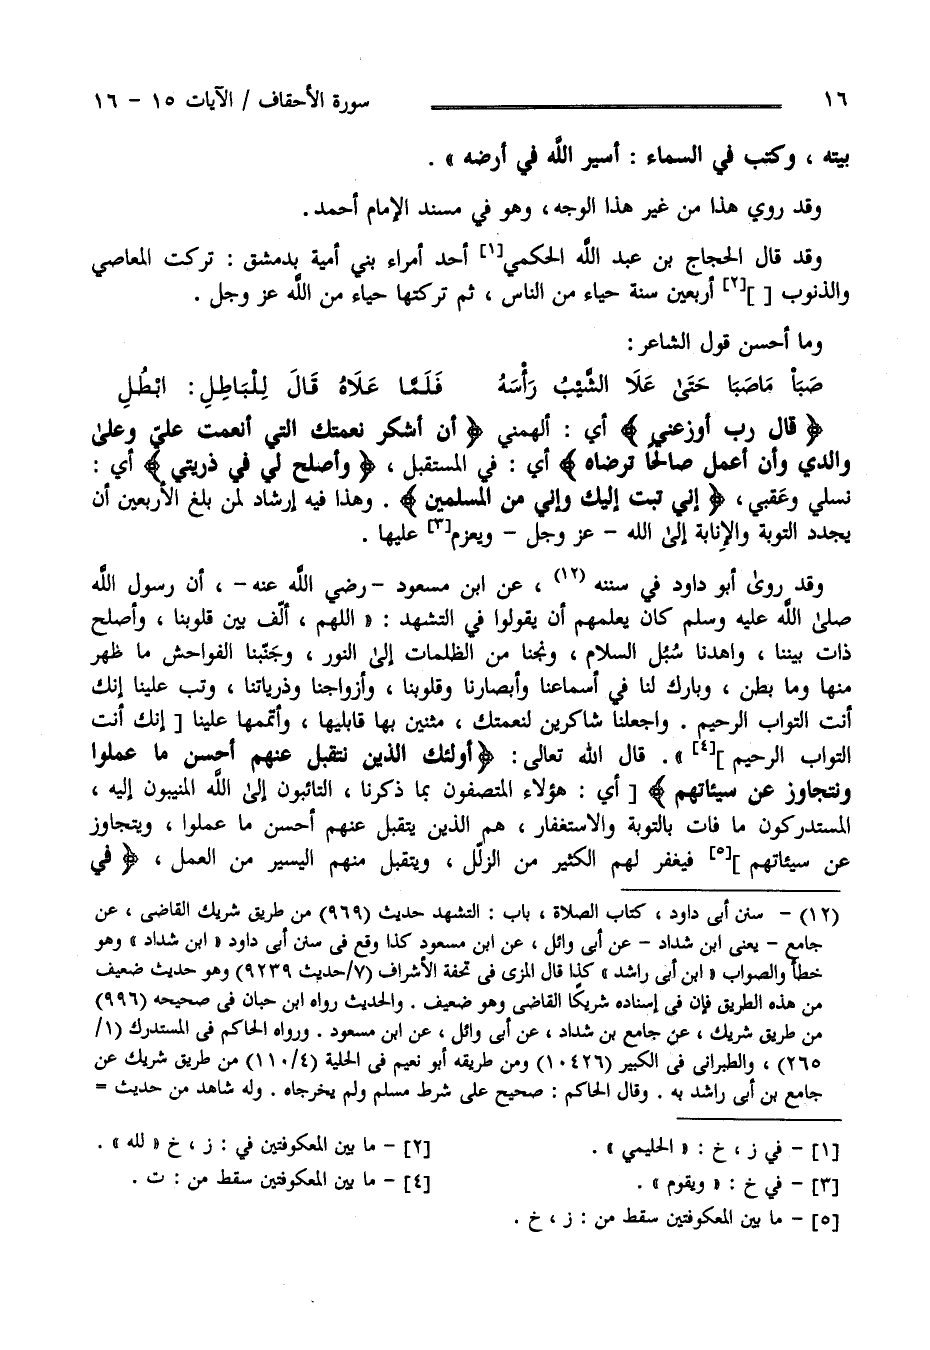 ١٦ سورة الأحقاف / الآيات ١٥ - ١٦
بيته ، وكتب في السماء : أسير اللَّه في أرضه » .
وقد روي هذا من غير هذا الوجه، وهو في مسند الإمام أحمد.
وقد قال الحجاج بن عبد اللَّه الحكمي[١] أحد أمراء بني أمية بدمشق : تركت المعاصي
والذنوب [ ][٢] أربعين سنة حياء من الناس ، ثم تركتها حياء من اللَّه عز وجل .
وما أحسن قول الشاعر:
صَبَاْ مَاصَبَا حَتَىٰ عَلَا الشَّيْبُ رَأْسَهُ فَلَمَّا عَلَاهُ قَالَ لِلْبَاطِلِ: ابْطُلِ
﴿ قال رب أوزعني ﴾ أي : ألهمني ﴿ أن أشكر نعمتك التي أنعمت عليّ وعلىٰ
والدي وأن أعمل صالحًا ترضاه ﴾ أي : في المستقبل ، ﴿ وأصلح لي في ذريتي ﴾ أي :
نسلي وعَقبي، ﴿ إني تبت إليك وإني من المسلمين ﴾ . وهذا فيه إرشاد لمن بلغ الأربعين أن
يجدد التوبة والإنابة إلىٰ الله - عز وجل - ويعزم[٣] عليها .
وقد روىٰ أبو داود في سننه (١٢) ، عن ابن مسعود -رضي اللَّه عنه- ، أن رسول اللَّه
صلىٰ اللَّه عليه وسلم كان يعلمهم أن يقولوا في التشهد : « اللهم ، ألّف بين قلوبنا ، وأصلح
ذات بيننا ، واهدنا سُبُل السلام ، ونجنا من الظلمات إلىٰ النور ، وجَنّبنا الفواحش ما ظهر
منها وما بطن ، وبارك لنا في أسماعنا وأبصارنا وقلوبنا ، وأزواجنا وذرياتنا ، وتب علينا إنك
أنت التواب الرحيم . واجعلنا شاكرين لنعمتك ، مثنين بها قابليها ، وأتممها علينا [ إنك أنت
التواب الرحيم ][٤] ». قال الله تعالى: ﴿أولئك الذين نتقبل عنهم أحسن ما عملوا
ونتجاوز عن سيئاتهم ﴾ [ أي : هؤلاء المتصفون بما ذكرنا ، التائبون إلىٰ اللَّه المنيبون إليه ،
المستدركون ما فات بالتوبة والاستغفار ، هم الذين يتقبل عنهم أحسن ما عملوا ، ويتجاوز
عن سيئاتهم ][٥] فيغفر لهم الكثير من الزلَل ، ويتقبل منهم اليسير من العمل ، ﴿ في
(١٢) - سنن أبى داود ، كتاب الصلاة ، باب : التشهد حديث (٩٦٩) من طريق شريك القاضى ، عن
جامع - يعنى ابن شداد - عن أبى وائل ، عن ابن مسعود كذا وقع فى سنن أبى داود « ابن شداد » وهو
خطأ والصواب « ابن أبى راشد » كذا قال المزى فى تحفة الأشراف (٧/حديث ٩٢٣٩) وهو حديث ضعيف
من هذه الطريق فإن فى إسناده شريكًا القاضى وهو ضعيف . والحديث رواه ابن حبان فى صحيحه (٩٩٦)
من طريق شريك ، عن جامع بن شداد ، عن أبى وائل ، عن ابن مسعود . ورواه الحاكم فى المستدرك (١/
٢٦٥) ، والطبرانى فى الكبير (١٠٤٢٦) ومن طريقه أبو نعيم فى الحلية (٤/ ١١٠) من طريق شريك عن
جامع بن أبى راشد به . وقال الحاكم : صحيح على شرط مسلم ولم يخرجاه . وله شاهد من حديث =
[١] - في ز ، خ : « الحليمي » . [٢] - ما بين المعكوفتين في : ز ، خ « لله » .
[٣] - في خ : « ويقوم » . [٤] - ما بين المعكوفتين سقط من : ت .
[٥] - ما بين المعكوفتين سقط من : ز ، خ .